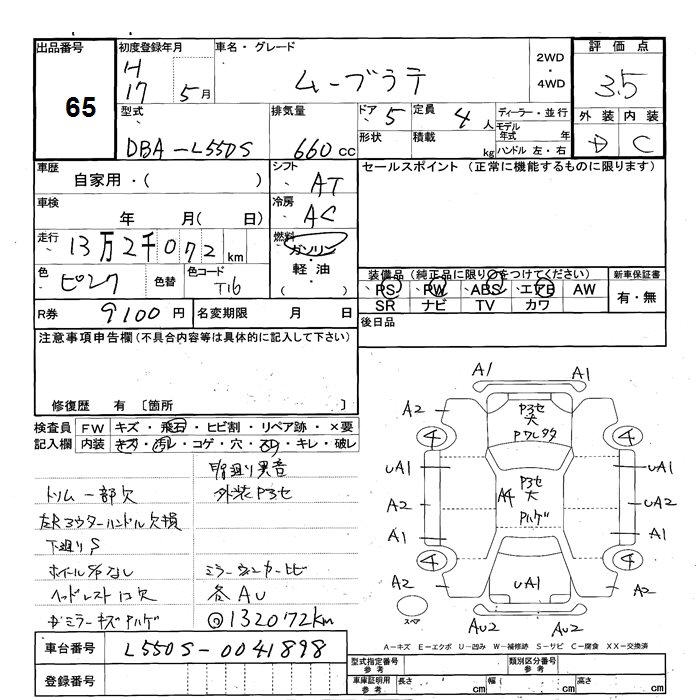 出品番号
65
初度登録年月
H
17 5月
車名・グレード
ムーブラテ
2WD
・
4WD
評価点
3.5
外装 内装
D C
型式
DBA-L550S
排気量
660 cc
ドア 5
定員 4人
形状
積載 kg
ディーラー・並行
モデル
年式 年
ハンドル 左・右
車歴
自家用・( )
シフト
AT
セールスポイント (正常に機能するものに限ります)
車検
年 月( 日)
冷房
AC
走行
13万2千072 km
燃料
ガソリン
・
軽油
( )
色
ピンク
色替
色コード
T16
装備品(純正品に限り○をつけてください)
新車保証書
PS PW ABS エアB AW
SR ナビ TV カワ
有・無
R券 9100 円
名変期限 月 日
後日品
注意事項申告欄(不具合内容等は具体的に記入して下さい)
修復歴 有 〔箇所 〕
検査員
記入欄
FW キズ・飛石・ヒビ割・リペア跡・×要
内装 キズ・汚レ・コゲ・穴・ネジ・キレ・破レ
外装P3セ
トリム一部欠
左Rアウターハンドル欠損
下廻りS
ホイールS/Pなし
ミラーウィンカーヒビ
ヘッドレスト1コ欠
各AU
ドミラーキズPハゲ
◎132072km
A1 A1
A2 A2
P3セ
大
PワレタA
4 4
UA1 UA1
A2 A4 UA2
P3セ
大
Pハゲ
A1 A1
4 4
A2 A2
UA1
スペア
AU2 AU2
車台番号
L550S-0041898
登録番号
A－キズ E－エクボ U－凹み W－補修跡 S－サビ C－腐食 XX－交換済
型式指定番号
参考
類別区分番号
参考
車庫証明用
参考
長さ cm
幅 cm
高さ cm